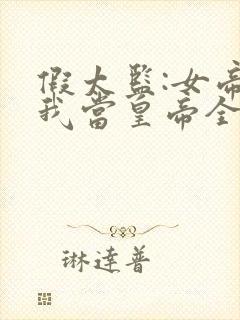 假太監:女帝
我當皇帝全
琳達普